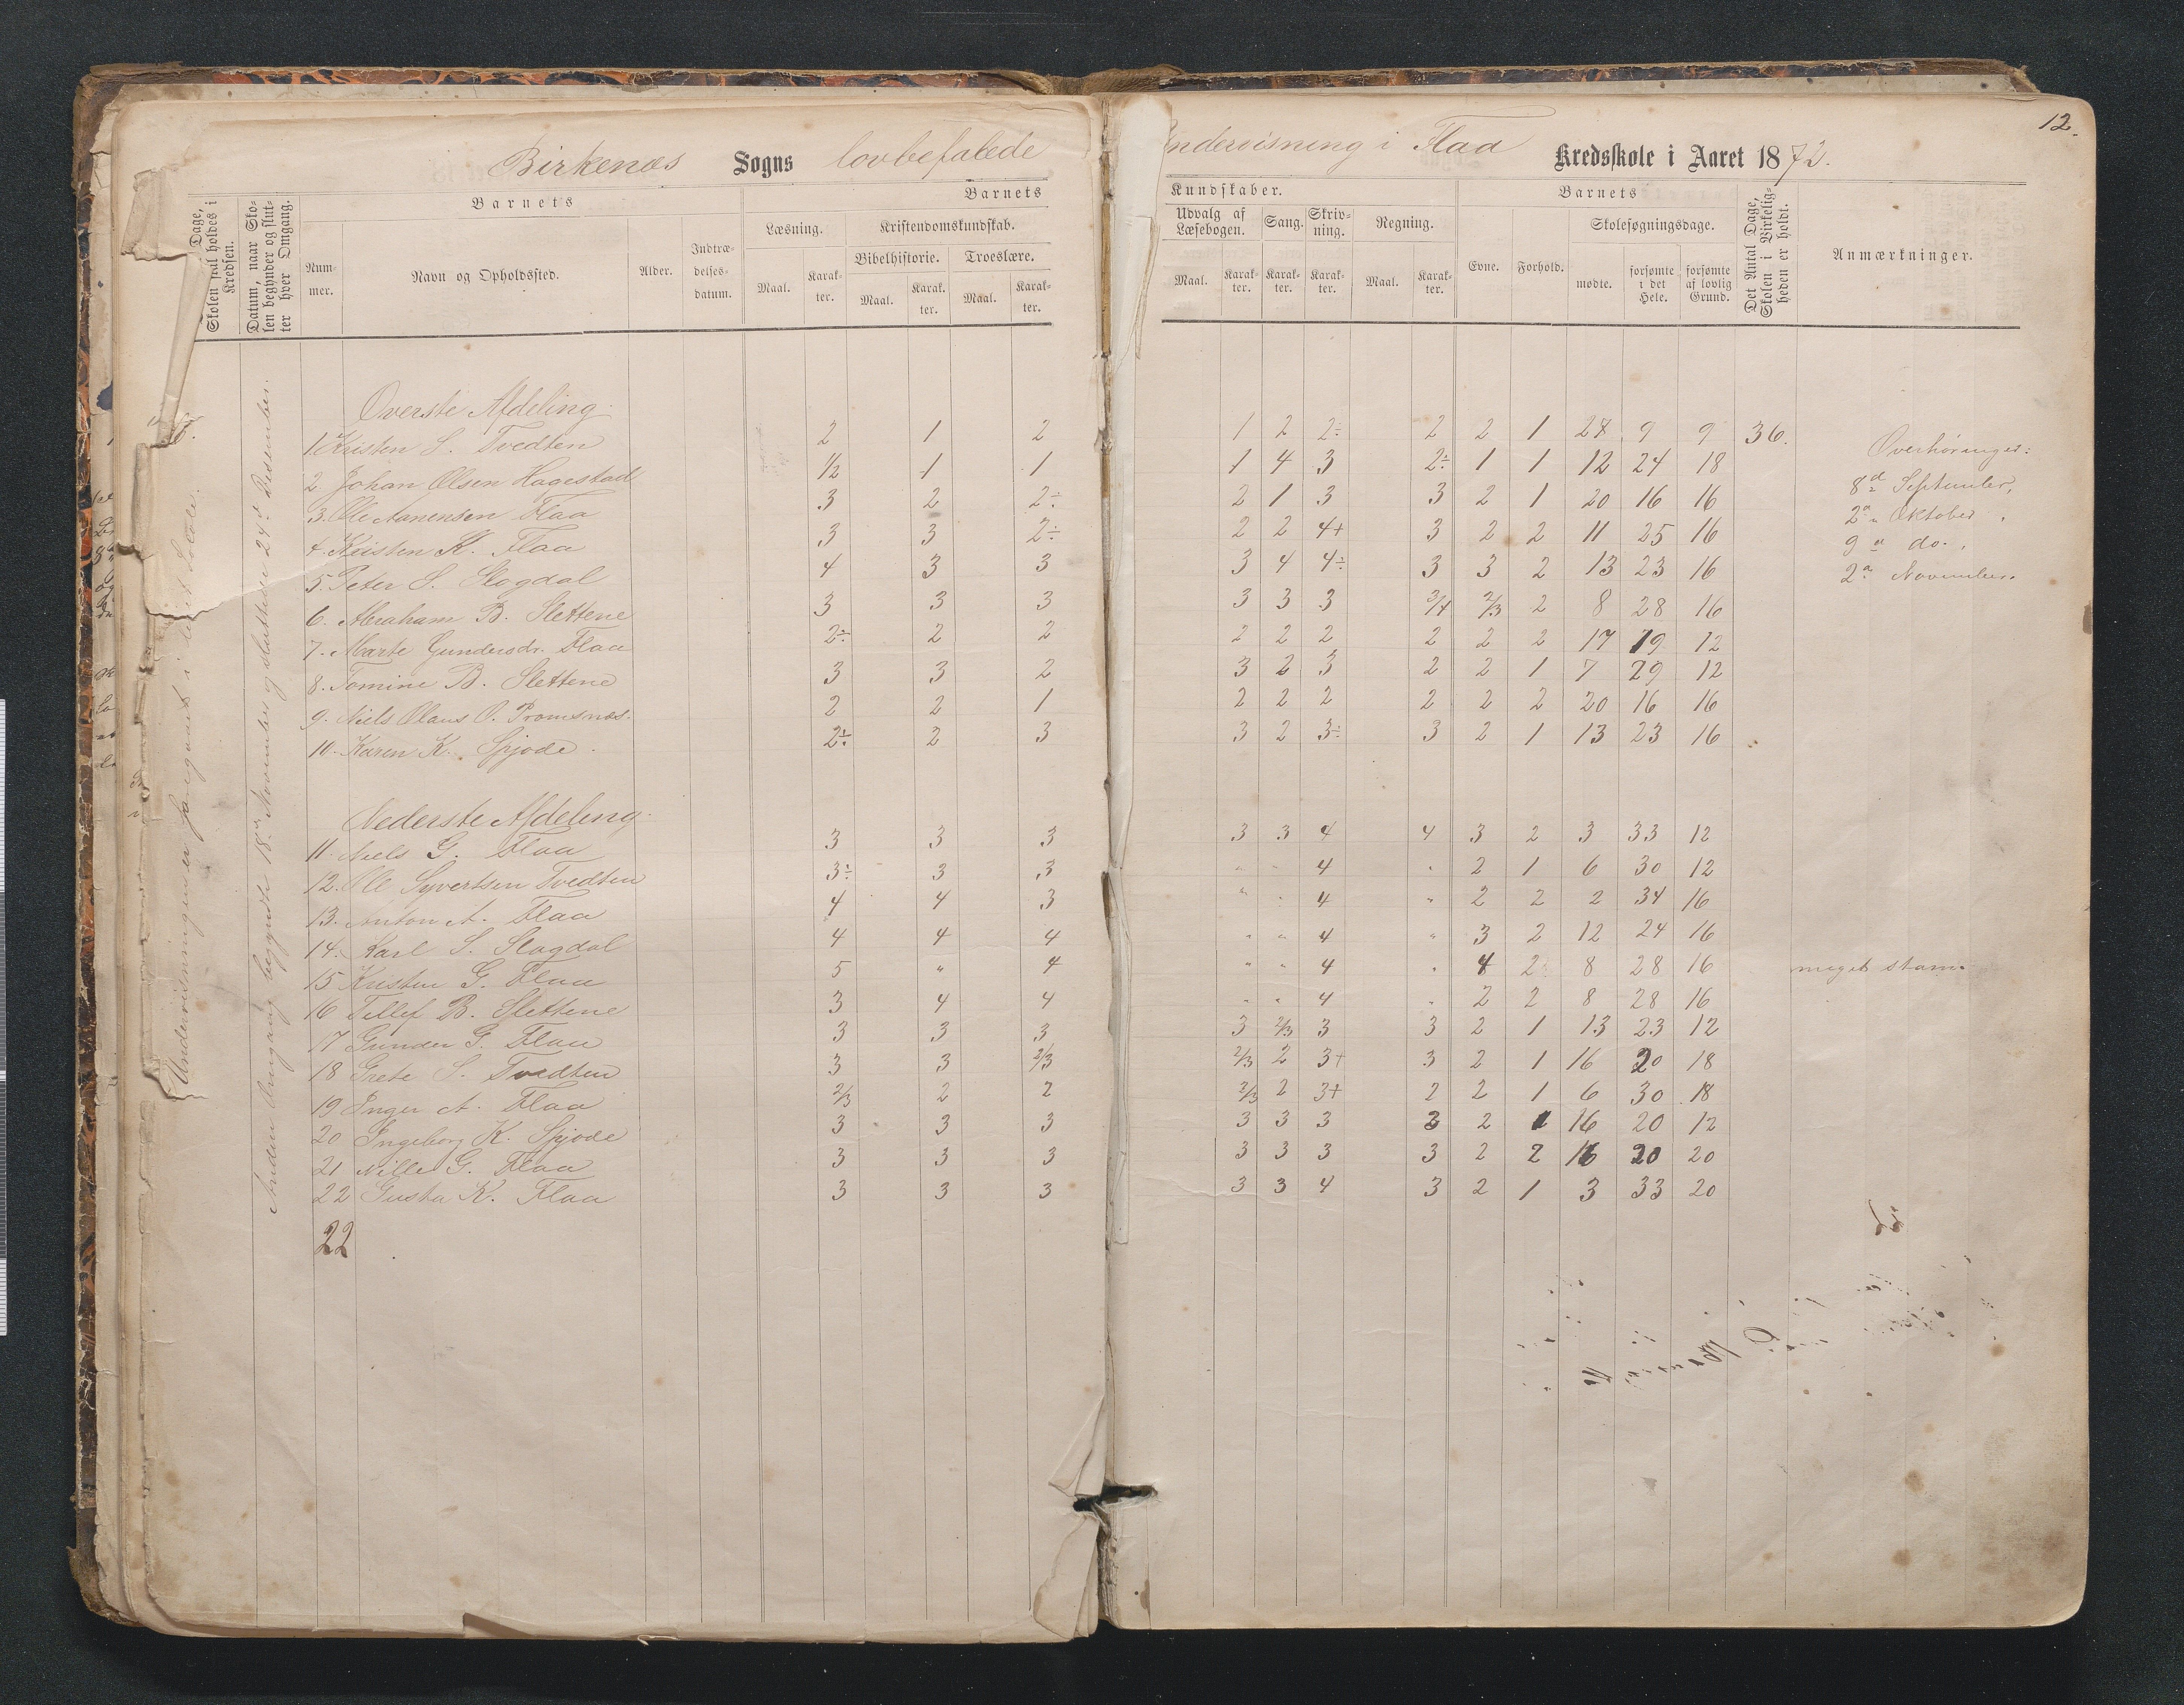 Birkenæs Sogns lovbefalede Undervisning i Flaa Kredsskole i Aaret 1872.
12.
Dage, Skolen skal holdes i Kredsen.
Datum, naar Skolen begynder og slutter hver Omgang.
Barnets
Nummer.
Navn og Opholdssted.
Alder.
Indtrædelsesdatum.
Barnets Kundskaber.
Læsning.
Maal. Karakter.
Kristendomskundskab.
Bibelhistorie. Troeslære.
Maal. Karakter. Maal. Karakter.
Udvalg af Læsebogen. Sang. Skrivning. Regning.
Maal. Karakter. Karakter. Karakter. Maal. Karakter.
Barnets
Evne. Forhold.
Skolesøgningsdage.
mødte. forsømte i det Hele. forsømte af lovlig Grund.
Det Antal Dage, Skolen i Virkeligheden er holdt.
Anmærkninger.
Undervisningen er
Anden Omgang begyndte 18de November og sluttede 24d Desember.
Øverste Afdeling.
1. Kristen S. Tvedten 2 1 2 1 2 2÷ 2 2 1 27 9 9 36.
2. Johan Olsen Hagestad 1/2 1 1 1 4 3 2÷ 1 1 12 24 18
3. Ole Aanensen Flaa 3 2 2÷ 2 1 3 3 2 1 20 16 16
4. Kristen K. Flaa 3 3 2÷ 2 2 4+ 3 2 2 11 25 16
5. Peter S. Slogdal 4 3 3 3 4 4÷ 3 3 2 13 23 16
6. Abraham B. Slettene 3 3 3 3 3 3 3/4 2/3 2 8 28 16
7. Marte Gundersdr. Flaa 2÷ 2 2 2 2 2 2 2 2 17 19 12
8. Tomine B. Slettene 3 3 2 3 2 3 2 2 1 7 29 12
9. Niels Olaus O. Promsnæs. 2 2 1 2 2 2 2 2 2 20 16 16
10. Karen K. Spjode. 2÷ 2 3 3 2 3÷ 3 2 1 13 23 16
Overhøringer:
8d September,
2d Oktober,
9d do.,
2d November.
Nederste Afdeling.
11. Niels G. Flaa 3 3 3 3 3 4 4 3 2 3 33 12
12. Ole Syvertsen Tvedten 3÷ 3 3 " " 4 " 2 1 6 30 12
13. Anton A. Flaa 4 4 3 " " 4 " 2 2 2 34 16
14. Karl S. Slogdal 4 4 4 " " 4 " 3 2 12 24 16
15 Kristen G. Flaa 5 " 4 " " 4 " 4 2 8 28 16 meget stam
16 Tellef B. Slettene 3 4 4 " " 4 " 2 2 8 28 16
17 Gunder G. Flaa 3 3 3 3 2/3 3 3 2 1 13 23 12
18 Grete S. Tvedten 3 3 2/3 2/3 2 3+ 3 2 1 16 20 18
19 Inger A. Flaa 2/3 2 2 2/3 2 3+ 2 2 1 6 30 18
20 Ingeborg K. Spjode 3 3 3 3 3 3 3 2 1 16 20 12
21 Nille G. Flaa 3 3 3 3 3 3 3 2 2 16 20 20
22 Gusta K. Flaa 3 3 3 3 3 4 3 2 1 3 33 20
22